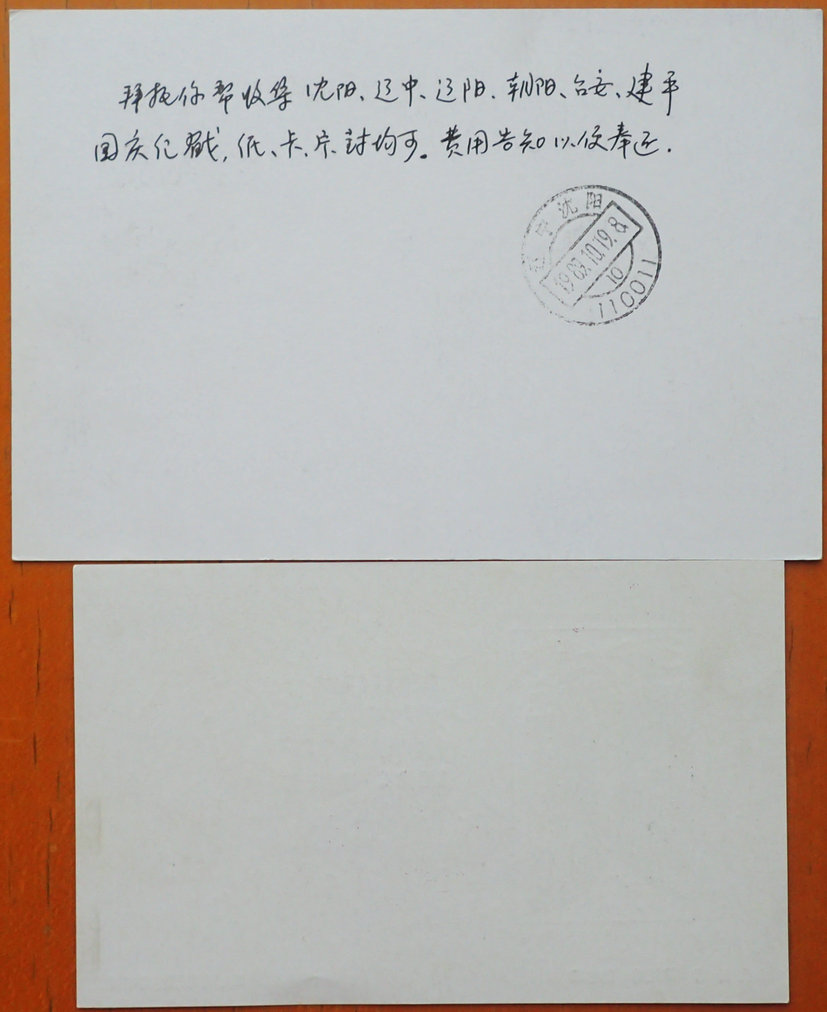 拜托你帮收集沈阳、辽中、辽阳、朝阳、台安、建平
国庆纪戳，纸、卡、片、封均可。费用告知以便奉还.
辽宁沈阳
1989.10.19.8
10
110011